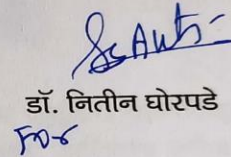 डॉ. नितीन घोरपडे
For